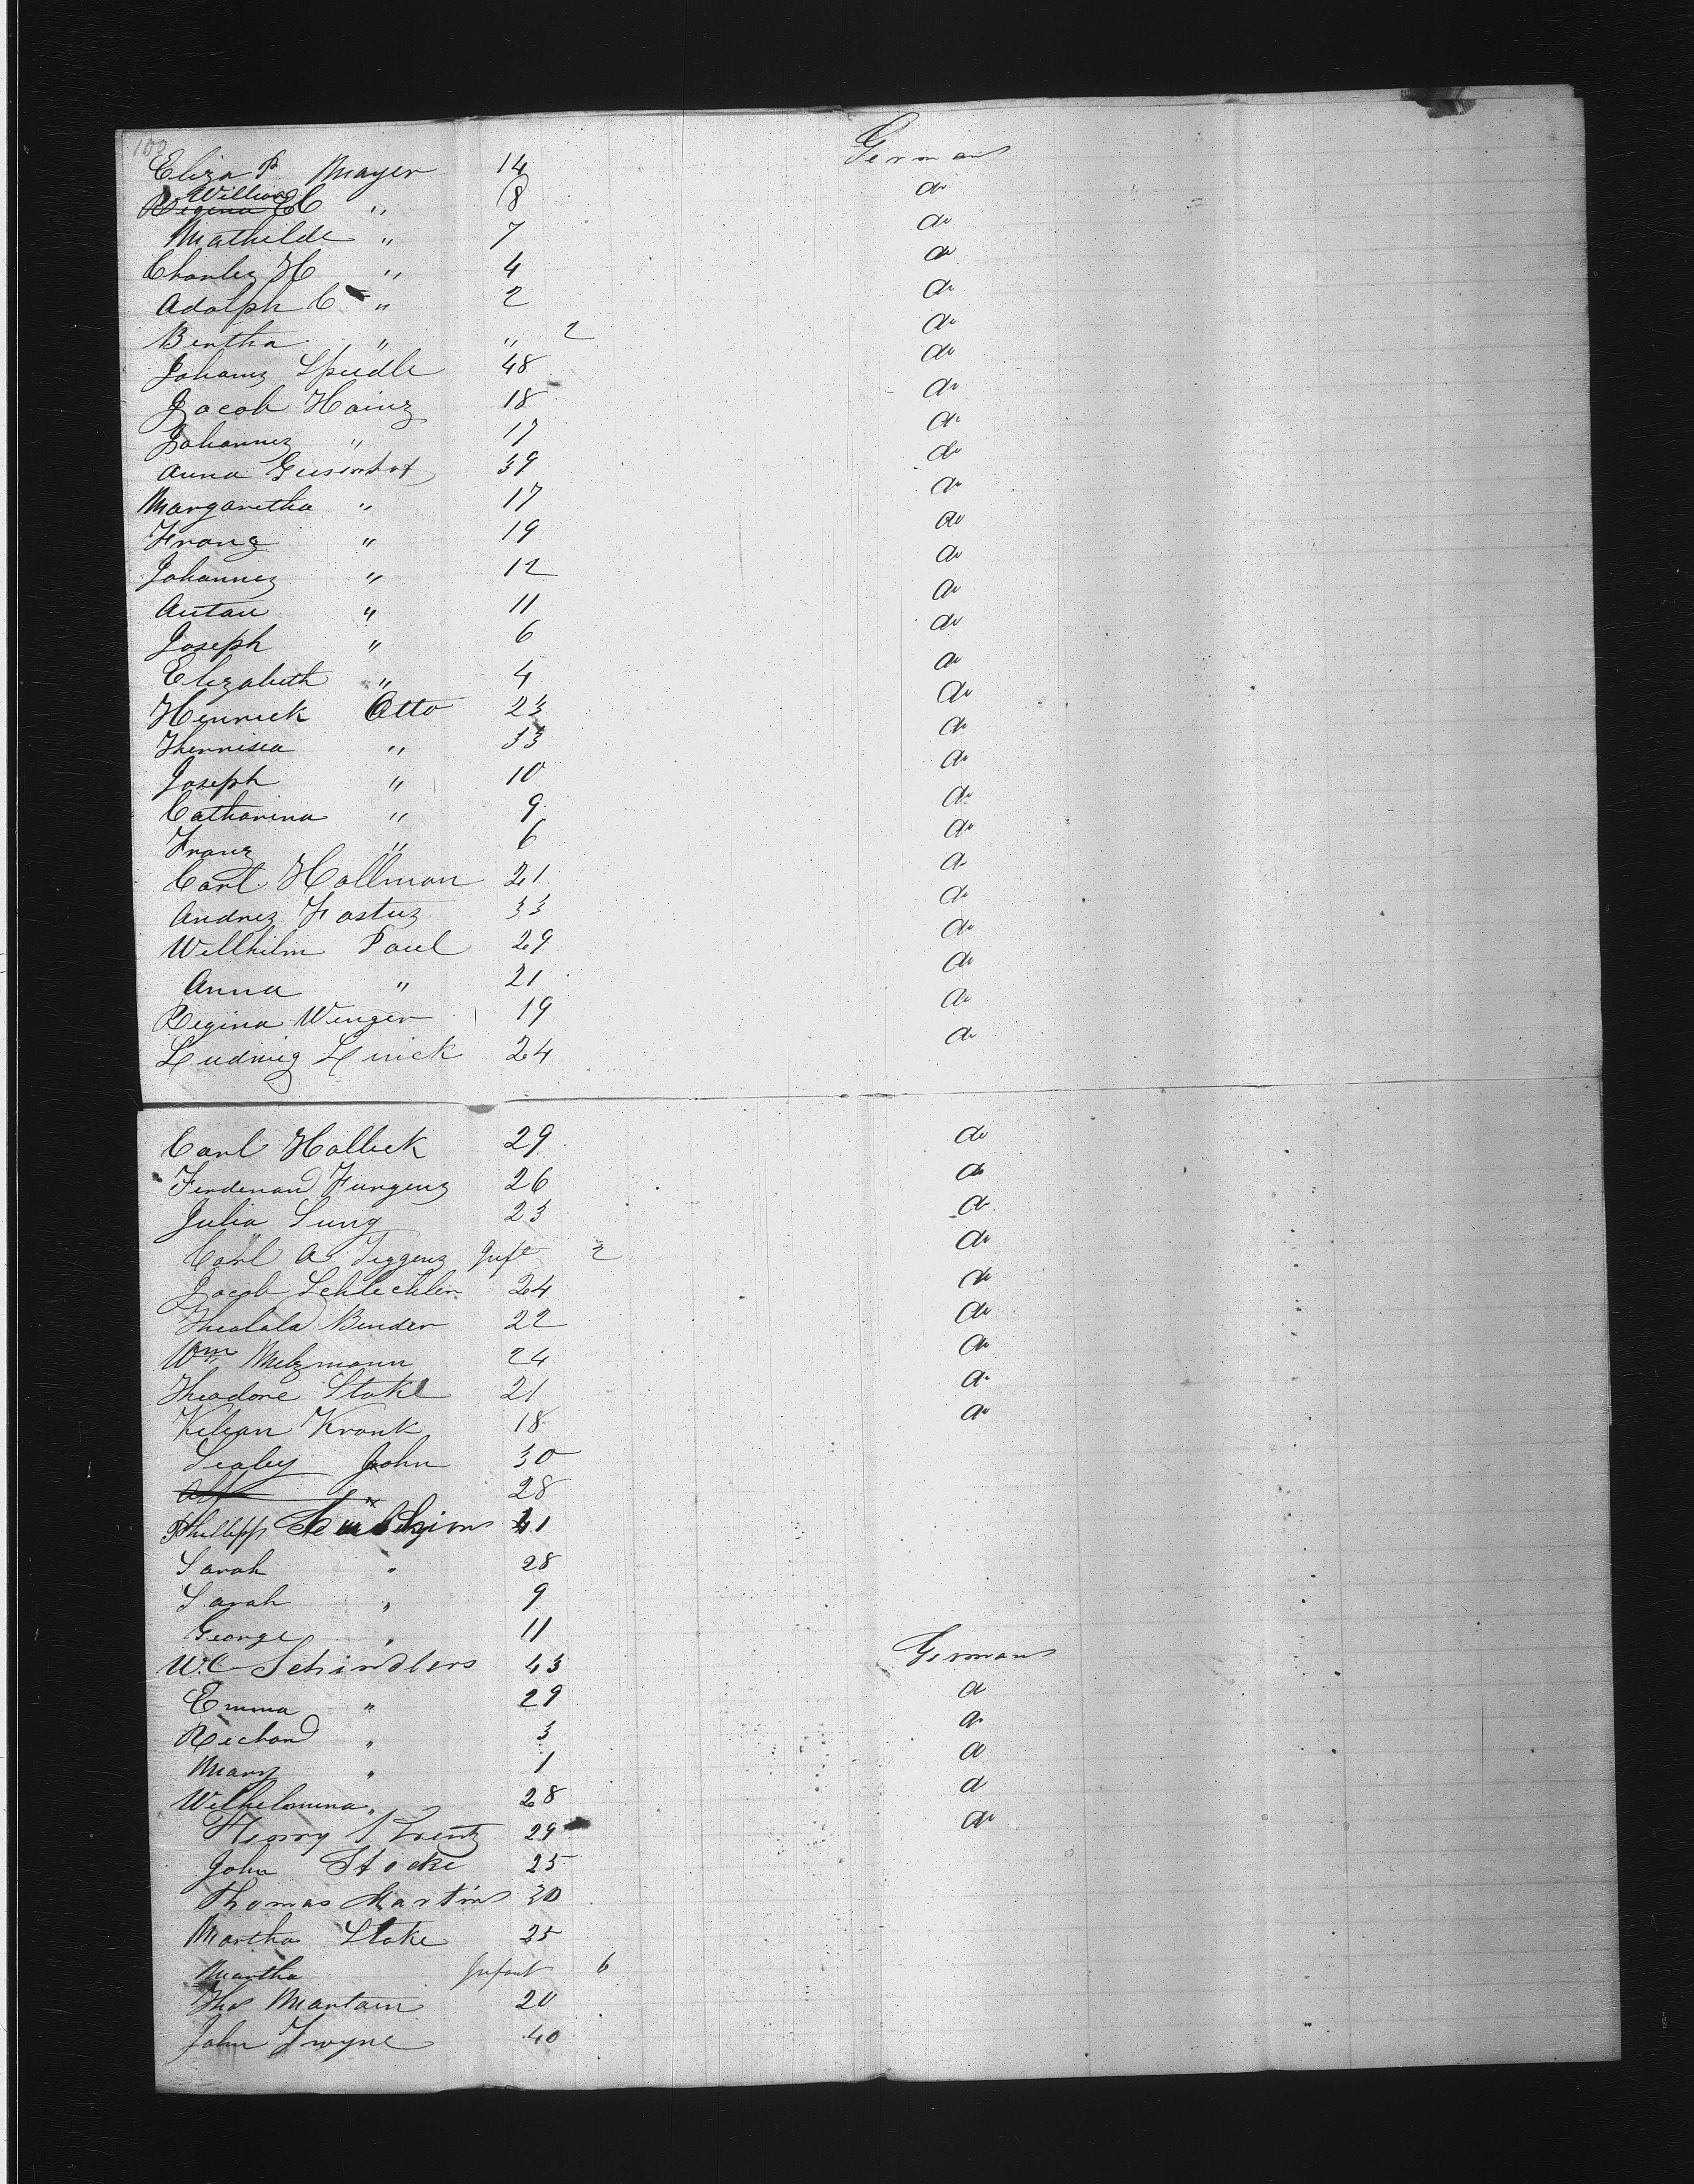 100
Eliza P Mayer 14 German
Regina William C " 8 do
Mathilde " 7 do
Charles H " 4 do
Adolph C " 2 do
Bertha " " 2 do
Johanz Speedle 48 do
Jacob Hainz 18 do
Johannez " 17 do
Anna 39 do
Margaretha " 17 do
Franz " 19 do
Johannez " 12 do
Antau " 11 do
Joseph " 6 do
Elizabeth " 4 do
Henrick Otto 23 do
Thennisea " 33 do
Joseph " 10 do
Catharina " 9 do
Franz " 6 do
Carl Hallman 21 do
Andrez Fastuz 33 do
Willhilm Paul 29 do
Anna " 21 do
Regina Wenger 19 do
Ludwig 24 do
Carl Halleck 29 do
Ferdenand Furgenz 26 do
Julia Sung 23 do
Carl A Teggenz Inft 2 do
Jacob Schlechler 24 do
Binder 22 do
Wm Metzmann 24 do
Theodore Stake 21 do
Kilian Krank 18 do
Sealey John 30
Alf " 28
Phillipp 41
Sarah " 28
Sarah " 9
George " 11
W.C Schindlers 43 German
Emma " 29 do
Richard " 3 do
Mary " 1 do
Wilhelmina " 28 do
Henry 29 do
John Stocke 25
Thomas Martin 30
Martha Stoke 25
Martha Infant 6
Thos Martain 20
John Twyne 40